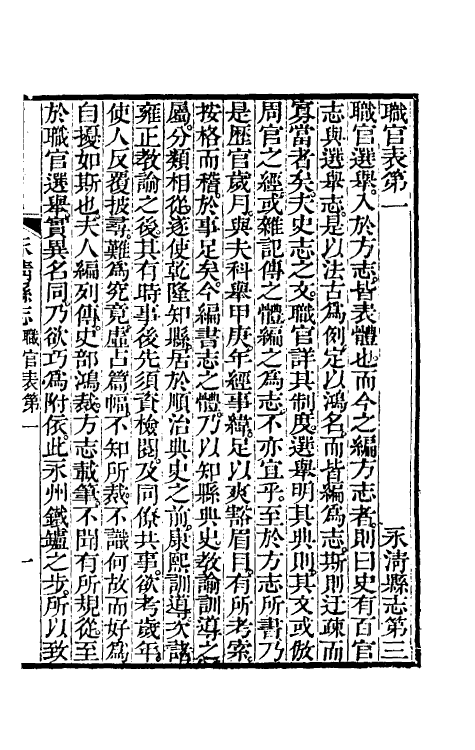 職官表第一　永清縣志第三
職官選舉入於方志皆表體也而今之編方志者則曰史有百官
志與選舉志是以法古爲例定以鴻名而皆編爲志斯則迂疎而
寡當者矣夫史志之文職官詳其制度選舉明其典則其文或倣
周官之經或雜記傳之體編之爲志不亦宜乎至於方志所書乃
是歷官歲月與夫科舉甲庚年經事緯足以爽豁眉目有所考索
按格而稽於事足矣今編書志之體乃以知縣典史教諭訓導之
屬分類相從遂使乾隆知縣居於順治典史之前康熙訓導次諸
雍正教諭之後其有時事後先須資檢閱及同僚共事欲考歲年
使人反覆披尋難爲究竟虛占篇幅不知所裁不識何故而好爲
自擾如斯也夫人編列傳史部鴻裁方志載筆不聞有所規從至
於職官選舉實異名同乃欲巧爲附依此永州鐵鑪之步所以致
永清縣志 職官表第一　一